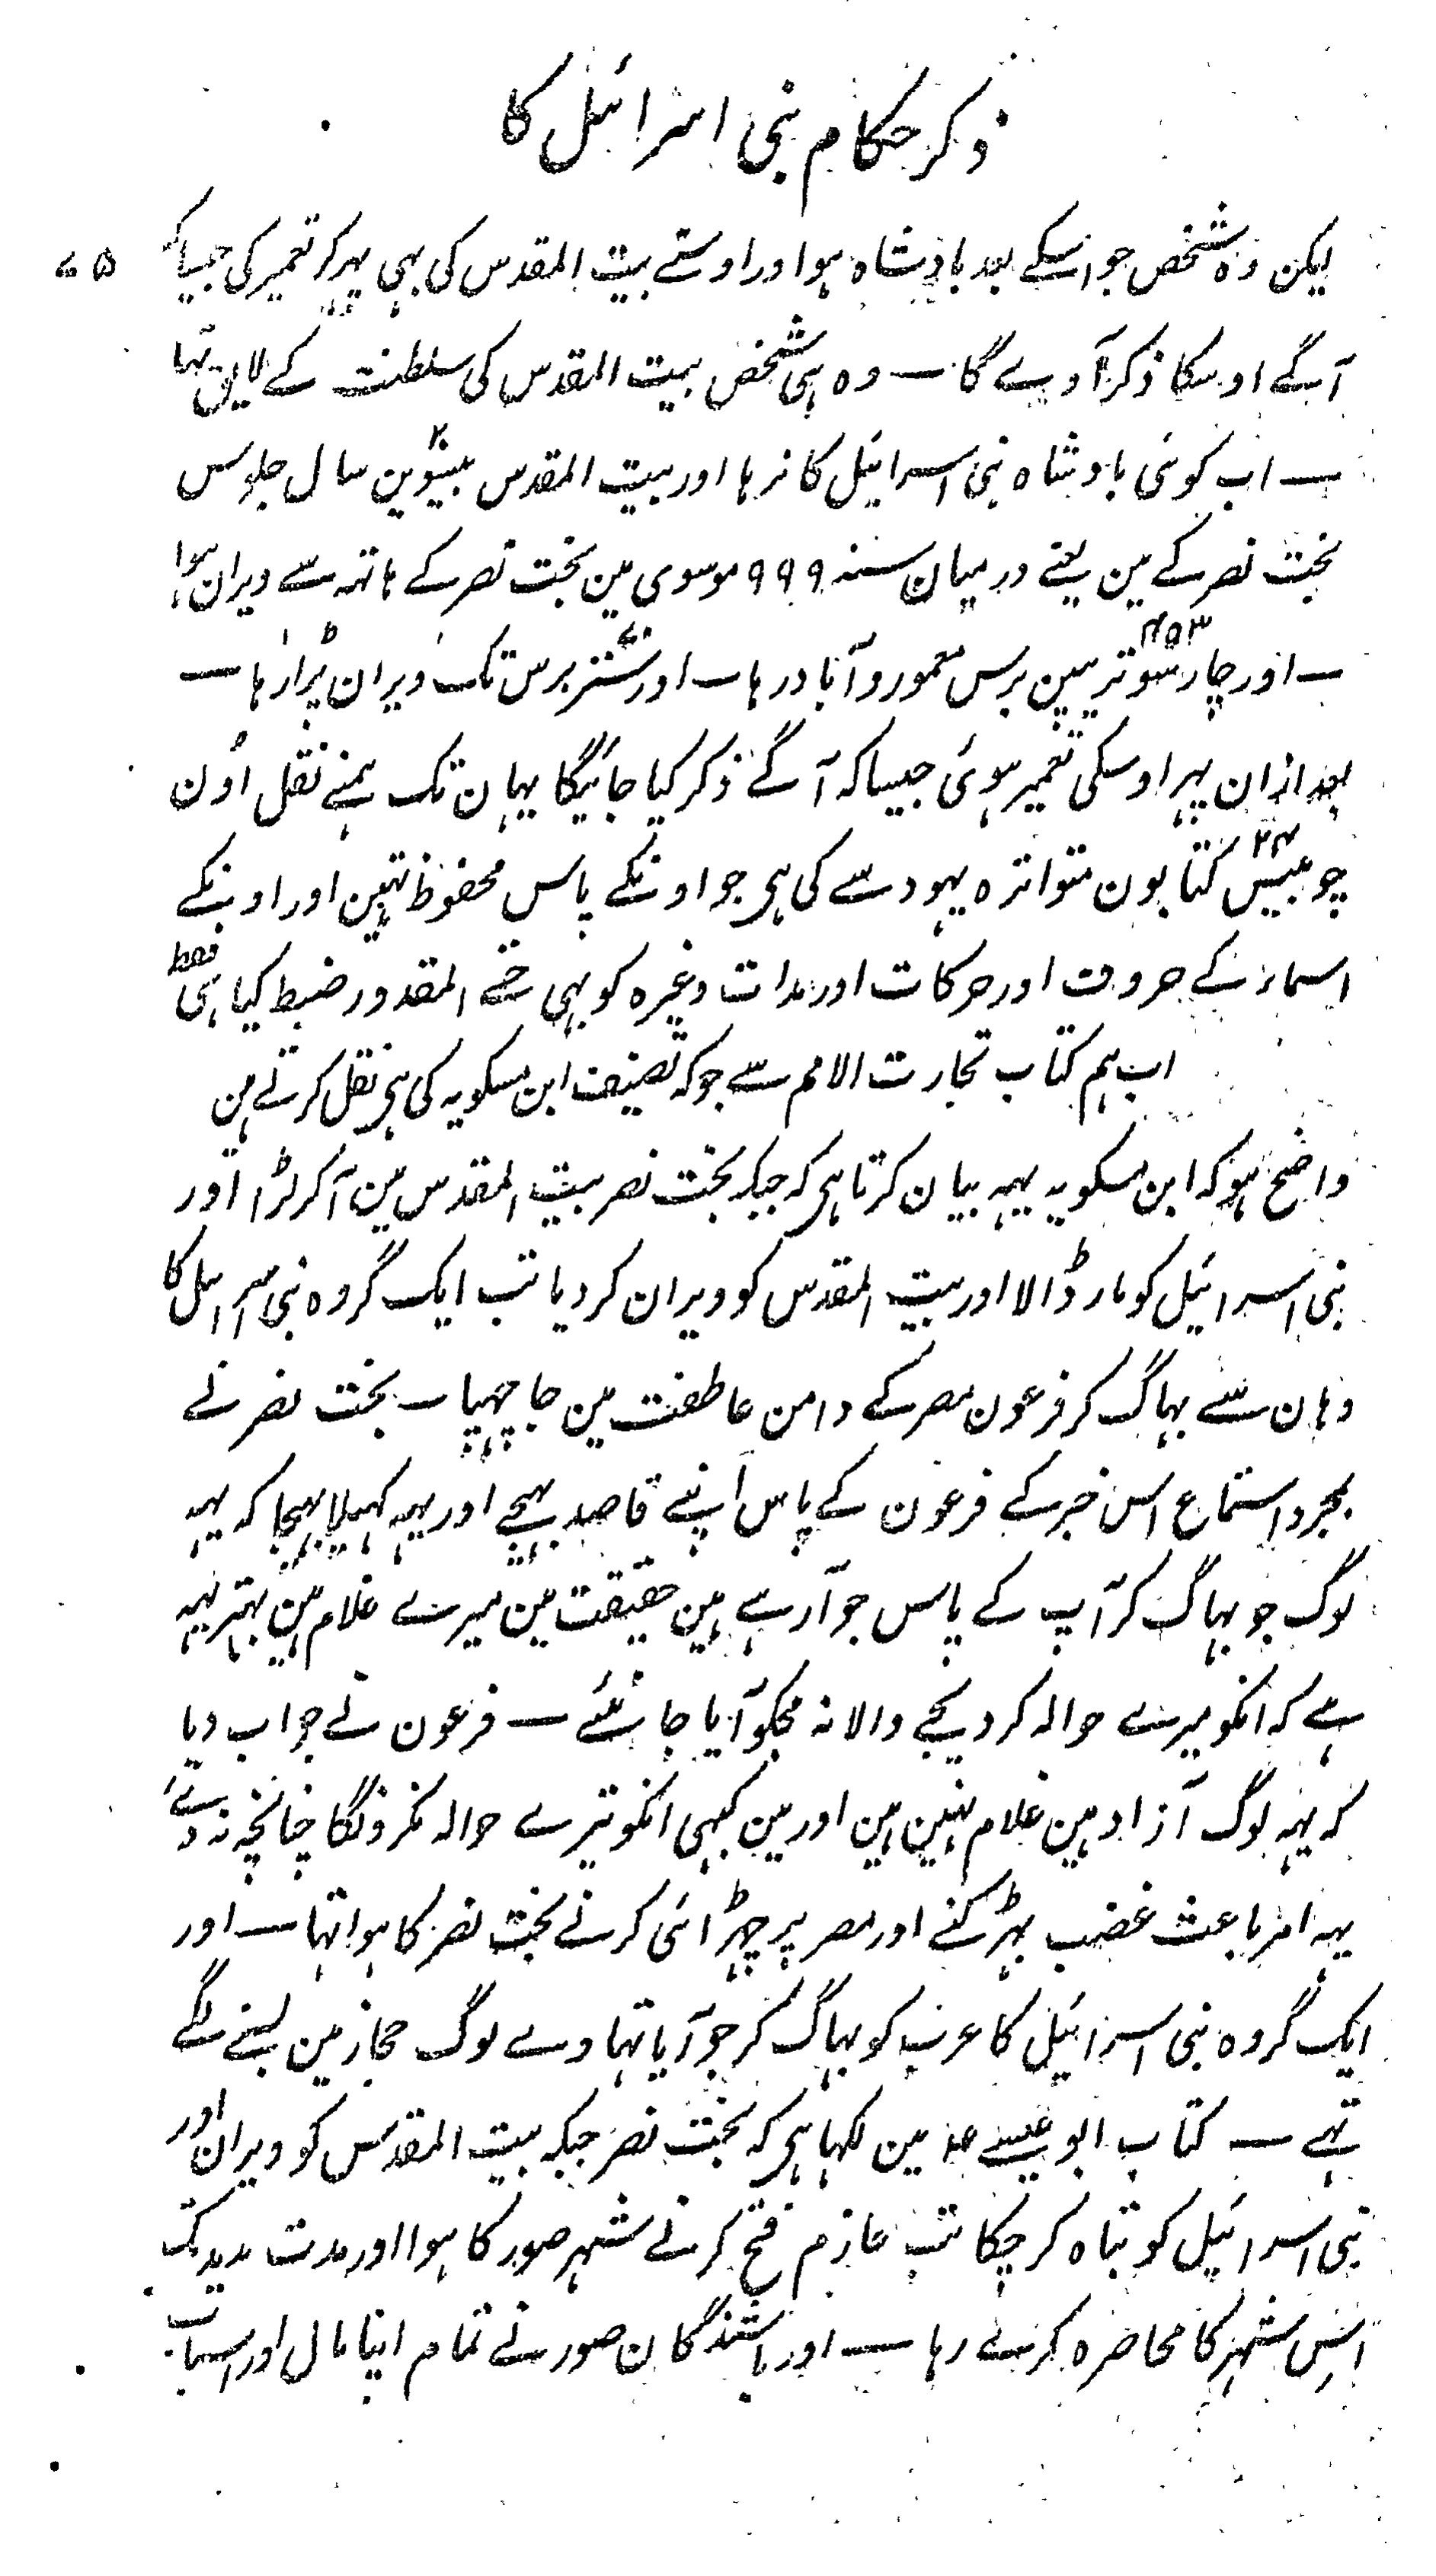 ذکر حکام بنی اسرائیل کا
۷۵
لیکن وہ شخص جو اسکے بعد بادشاہ ہوا اور اوسنے بیت المقدس کی بہی پہر کر تعمیر کی جیسا کہ
آگے اوسکا ذکر آویے گا ــ وہ ہی شخص بیت المقدس کی سلطنت کے لایق تہا
ــ اب کوئی بادشاہ بنی اسرائیل کا نرہا اور بیت المقدس بیسوین ۲۰ سال جلوس
بخت نصر کے مین یعنے درمیان سنہ ۹۹۹ موسوی مین بخت نصر کے ہاتہ سے ویران ہوا
ــ اور چار سو ترپین ۴۵۳ برس معمور و آباد رہا ــ اور ستر ۷۰ برس تک ویران پڑا رہا ــ
بعد ازان پہر اوسکی تعمیر ہوئی جیسا کہ آگے ذکر کیا جائیگا یہان تک ہمنے نقل اُون
چوبیس ۲۴ کتابون متواترہ یہود سے کی ہی جو اونکے پاس محفوظ تہین اور اونکے
اسماء کے حروف اور حرکات اور مدات وغیرہ کو بہی حتے المقدور ضبط کیا ہی فقط
اب ہم کتاب تجارت الامم سے جو کہ تصنیف ابن مسکویہ کی ہی نقل کرتے ہین
واضح ہو کہ ابن مسکویہ یہہ بیان کرتا ہی کہ جبکہ بخت نصر بیت المقدس مین آکر لڑا اور
بنی اسرائیل کو مار ڈالا اور بیت المقدس کو ویران کر دیا تب ایک گروہ بنی اسرائیل کا
وہان سے بہاگ کر فرعون مصر کے دامن عاطفت مین جا چہپا ــ بخت نصر نے
بمجرد استماع اس خبر کے فرعون کے پاس اپنے قاصد بہیجے اور یہہ کہیلا بہیجا کہ یہہ
لوگ جو بہاگ کر آپ کے پاس جو آرہے ہین حقیقت مین میرے غلام ہین بہتر یہہ
ہے کہ انکو میرے حوالہ کر دیجے والا نہ مجکو آیا جانئے ــ فرعون نے جواب دیا
کہ یہہ لوگ آزاد ہین غلام نہین ہین اور مین کبہی انکو تیرے حوالہ نکرونگا چنانچہ نہ دئے
یہہ امر باعث غضب بہڑکنے اور مصر پر چہڑائی کرنے بخت نصر کا ہوا تہا ــ اور
ایک گروہ بنی اسرائیل کا عرب کو بہاگ کر جو آیا تہا وے لوگ حجاز مین بسنے لگے
تہے ــ کتاب ابو عیسے مین لکہا ہی کہ بخت نصر جبکہ بیت المقدس کو ویران اور
بنی اسرائیل کو تباہ کر چکا تب عازم فتح کرنے شہر صور کا ہوا اور مدت مدید تک
اس شہر کا محاصرہ کرتے رہا ــ اور باشندگان صور نے تمام اپنا مال اور اسباب